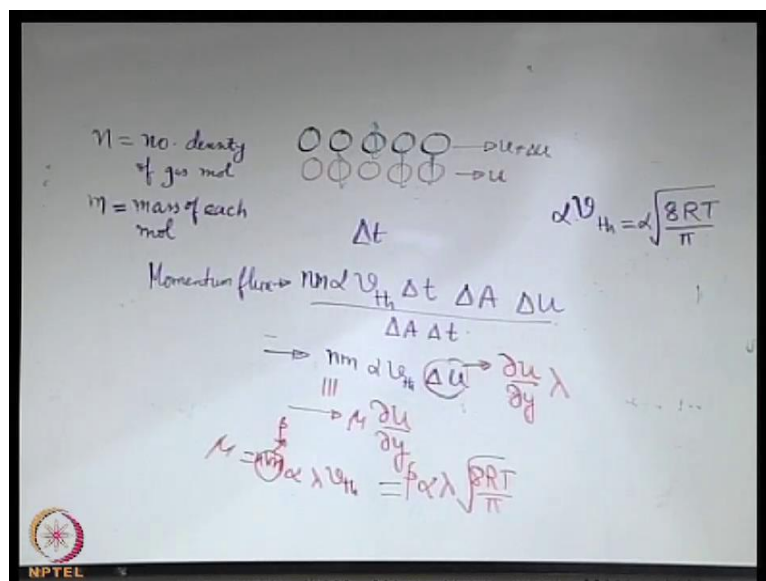 n = no. density of gas mol
→ u+Δu
→ u
m = mass of each mol
Δt
αv_th = α√(8RT/π)
Momentum flux → nmα v_th Δt ΔA Δu / ΔA Δt
→ nm α v_th Δu → ∂u/∂y λ
≡
→ μ ∂u/∂y
ρ
μ = nm α λ v_th = ραλ √(8RT/π)
NPTEL